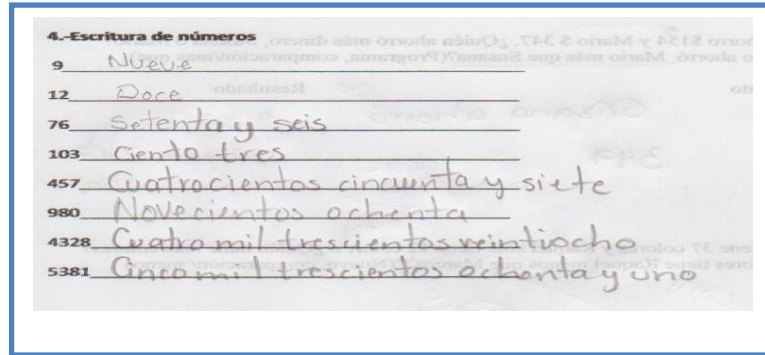 4.-Escritura de números
9 Nueve
12 Doce
76 Setenta y seis
103 Ciento tres
457 Cuatrocientos cincuenta y siete
980 Novecientos ochenta
4328 Cuatro mil trescientos veintiocho
5381 Cinco mil trescientos ochenta y uno